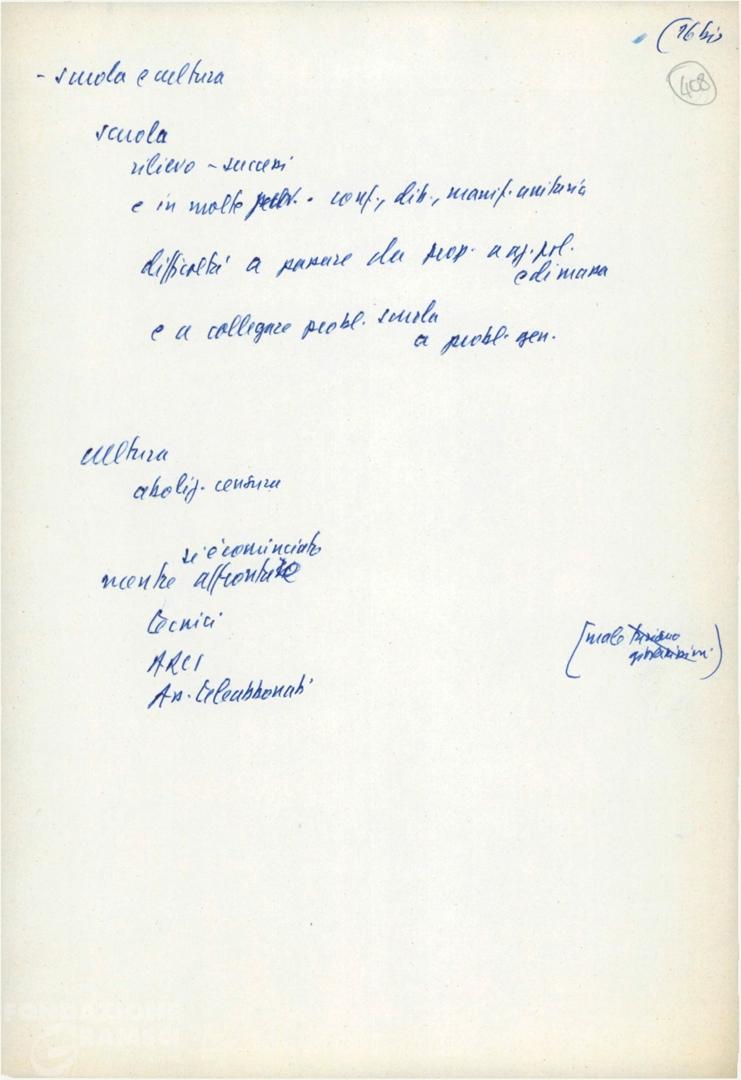 (16 bis
408
- scuola e cultura
scuola
rilievo - successi
e in molte - conf., dib., manif. unitaria
difficoltà a passare da prop. a az. pol.
e di massa
e a collegare probl. scuola
a probl. gen.
cultura
aboliz. censura
si è cominciato
mentre
tecnici
ARCI
As. teleabbonati
(male turismo
FONDAZIONE
GRAMSCI